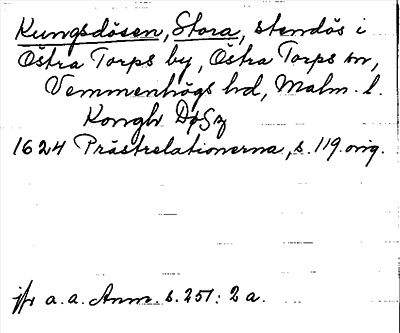 Kungsdösen, Stora, stendös i
Östra Torps by, Östra Torps sn,
Vemmenhögs hd, Malm. l.
Konghr Døsz
1624 Prästrelationerna, s. 119. orig.
jfr a.a. Anm. s. 251: 2 a.